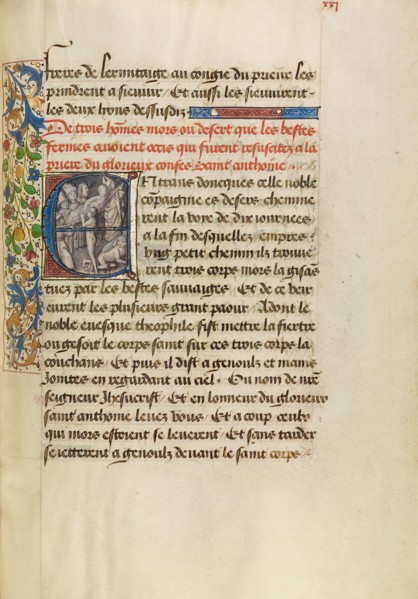 xxj
freres de lermitaige au congie du prieur les
prindrent a sieuvir / Et aussi les sieuvirent
les deux lyons dessusdiz
De trois hommes mors ou desert que les bestes
fermes avoient occis qui furent resuscitez a la
priere du glorieux confes Saint anthoine
Entrans doncques celle noble
compaignie es desers chemine
rent la voye de dix iournees
a la fin desquelles empres
vng petit chemin ilz trouue
rent trois corps mors la gisans
tuez par les bestes sauuaiges Et de ce veir
eurent les plusieurs grant paour / Adont le
noble euesque theophile fist mettre la fiertre
ou gesoit le corps saint sur ces trois corps la
couchans / Et puis il dist a genoulz et mains
Iointes en regardant au ciel / Ou nom de nre
seigneur Ihesucrist / Et en lonneur du glorieux
saint anthoine leuez vous / Et a coup ceulx
qui mors estoient se leuerent / Et sans tarder
se ietterent a genoulz deuant le saint corps